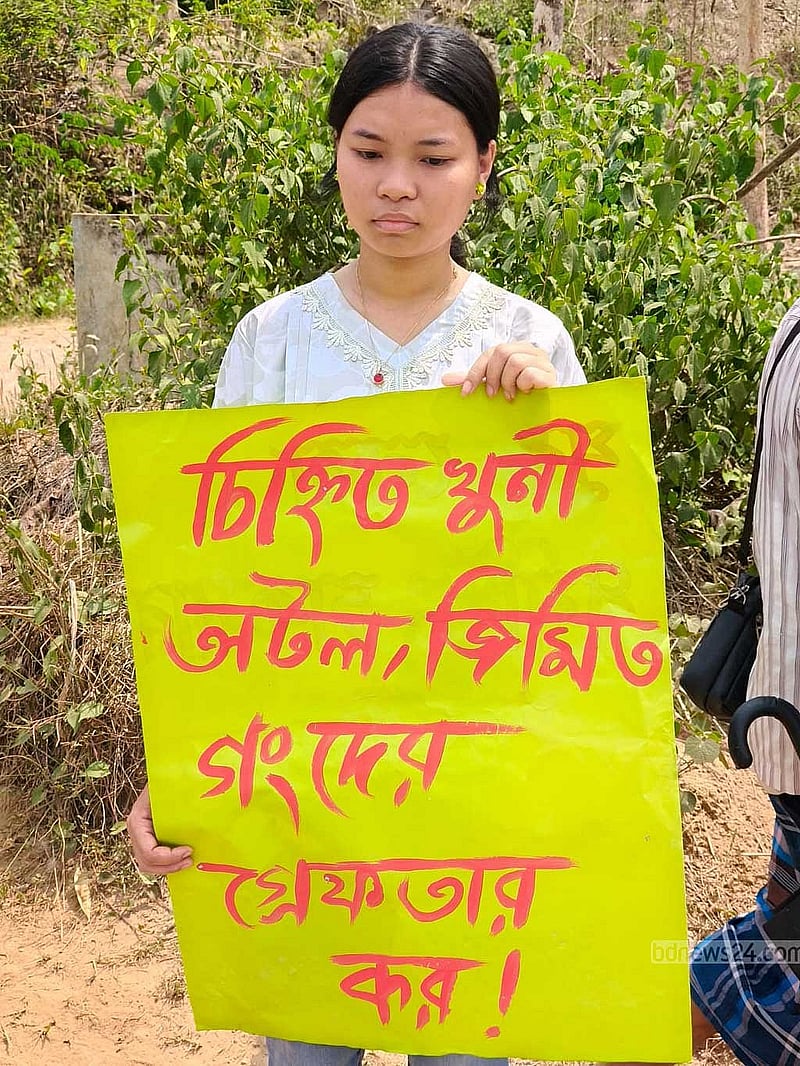 চিহ্নিত খুনী
অটল, জিমিত
গংদের
গ্রেফতার
কর!
bdnews24.com